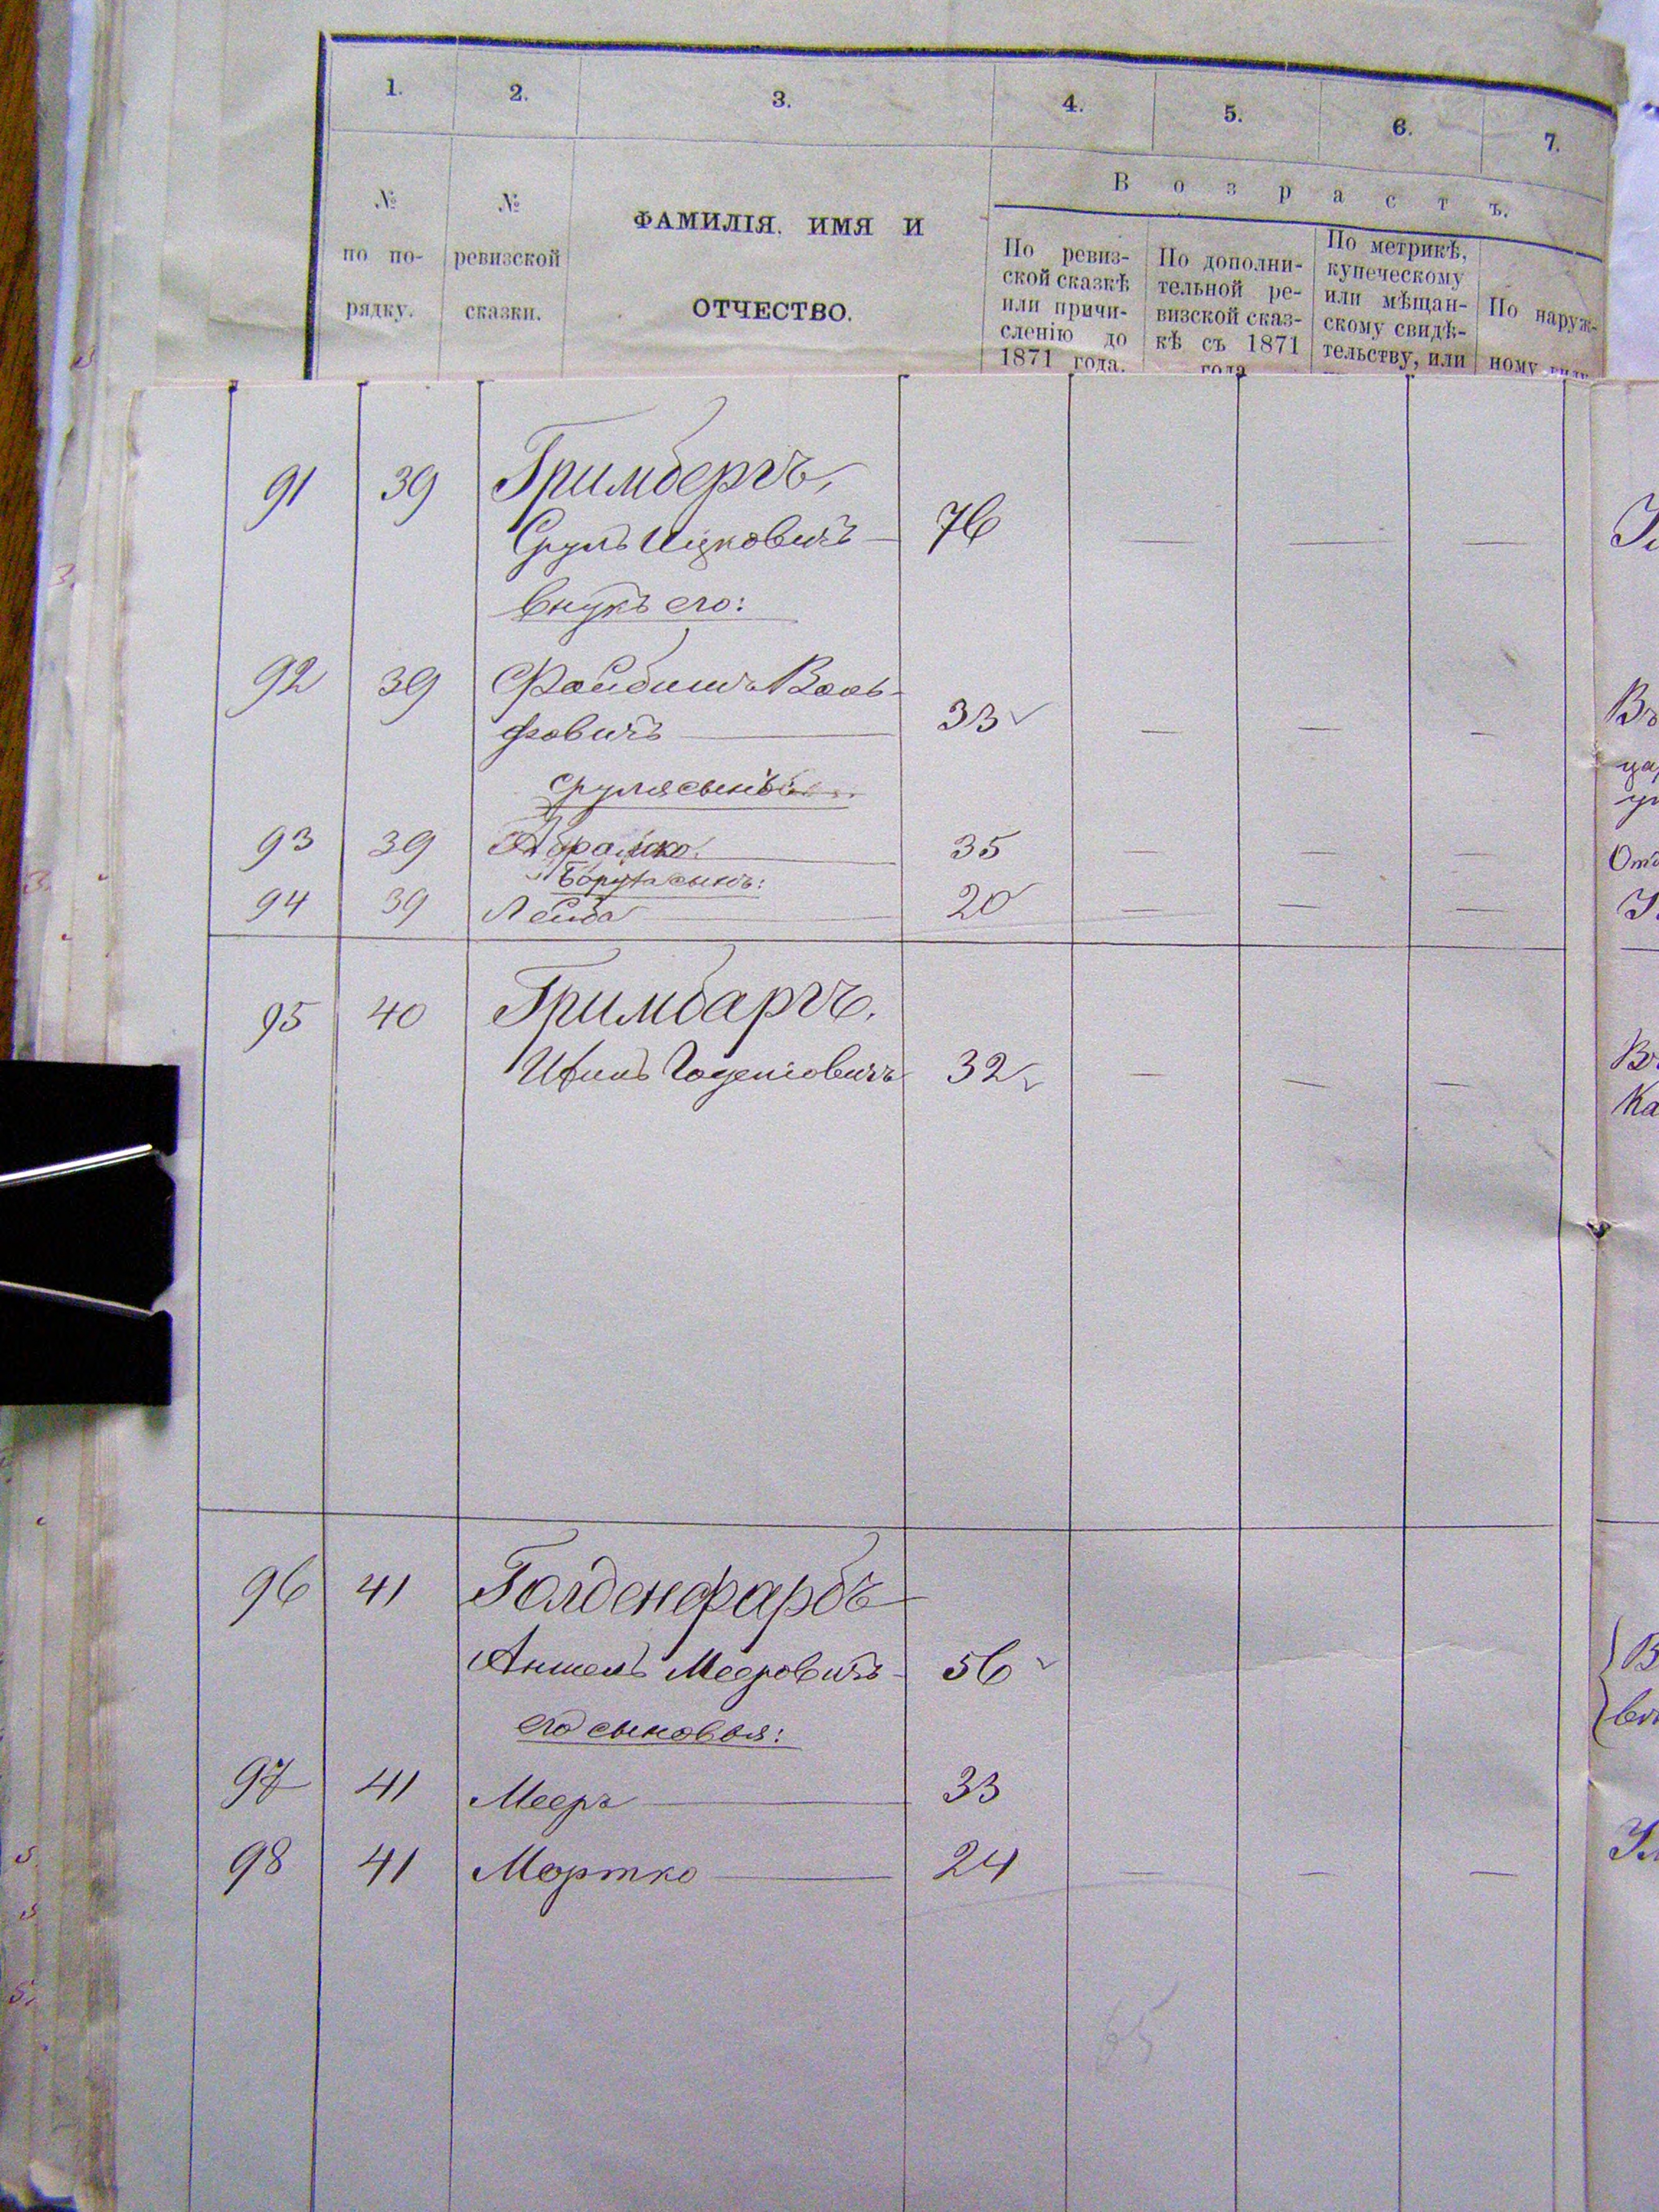 1. 2. 3. 4. 5. 6. 7.
№ по порядку.
№ ревизской сказки.
ФАМИЛІЯ, ИМЯ И
ОТЧЕСТВО.
Возрастъ.
По ревиз-
ской сказкѣ
или причи-
сленію до
1871 года.
По дополни-
тельной ре-
визской сказ-
кѣ съ 1871
года
По метрикѣ,
купеческому
или мѣщан-
скому свидѣ-
тельству, или
По наруж-
ному
91 39 Гримбергъ,
Сруль Ицковичъ — 76 — — —
внукъ его:
92 39 Файбишъ Воль-
фовичъ — 33 — — —
Сруля сынъ
93 39 Абрамко — 35 — — —
Боруха сынъ:
94 39 Лейба — 20 — — —
95 40 Гримбаргъ,
32 — — —
96 41 Голденфарбъ
Аншель Мееровичъ — 56
его сыновья:
97 41 Мееръ — 33
98 41 Мортко — 24 — — —
65